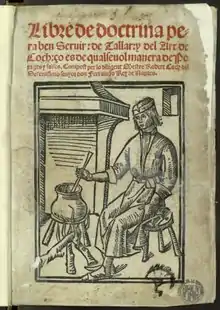 Libre de doctrina pe-
ra ben Seruir: de Tallar: y del Art de
Coch: ço es de qualseuol manera de po-
tatges y salses. Compost per lo diligent Mestre Robert Coch del
Serenissimo senyor don Ferrando Rey de Napols.